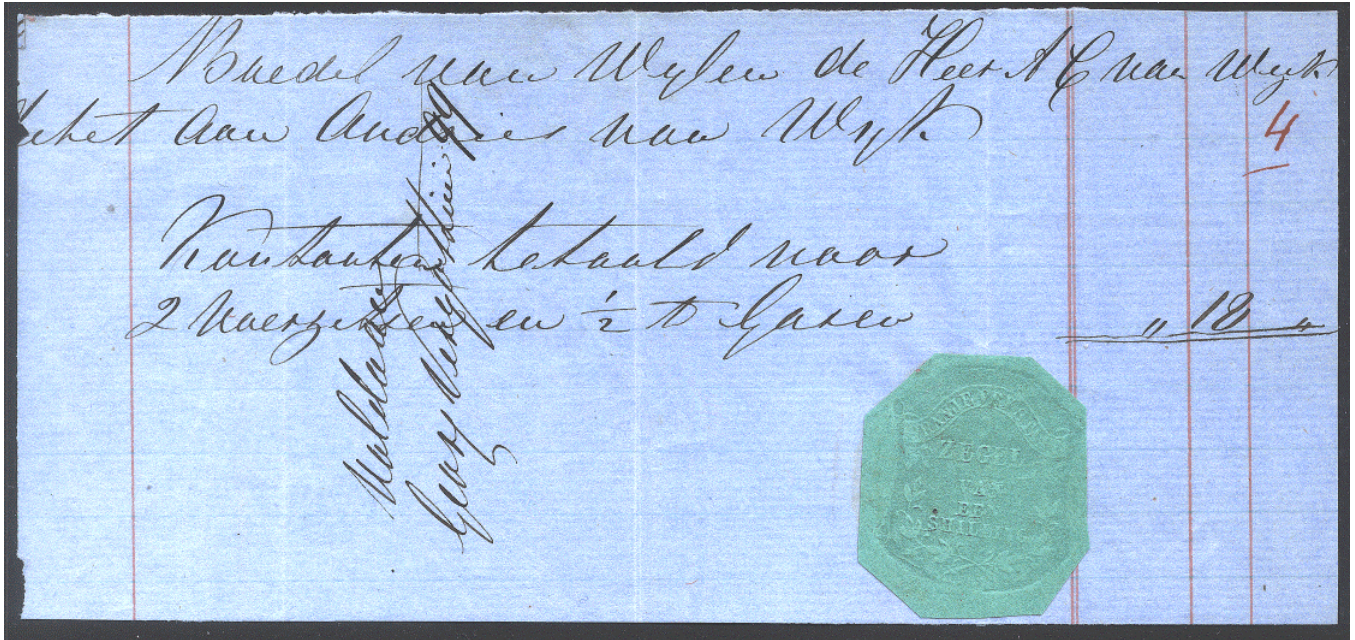 Boedel van Wylen de Heer A C van Wyk
aan Andries van Wyk
4
Kontanten betaald voor
2 en ½ ℔ Garen " 18 "
Voldaan
George
ZEGEL
VAN
EEN
SHILLING